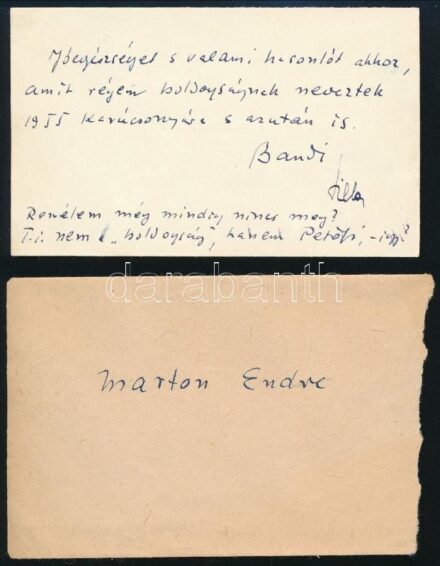 Jóegészséget s valami hasonlót ahhoz,
amit régen boldogságnak neveztek
1955 karácsonyára s azután is.
Bandi
Remélem még mindig nincs meg?
T.i. nem a „boldogság", hanem Petőfi, – igy?
darabanth
Marton Endre